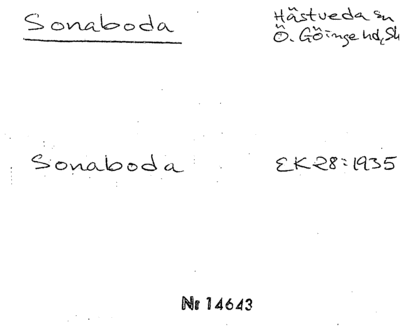 Sonaboda
Hästveda sn
Ö. Göinge hd, Sk
Sonaboda
EK 28:1935
Nr 14643